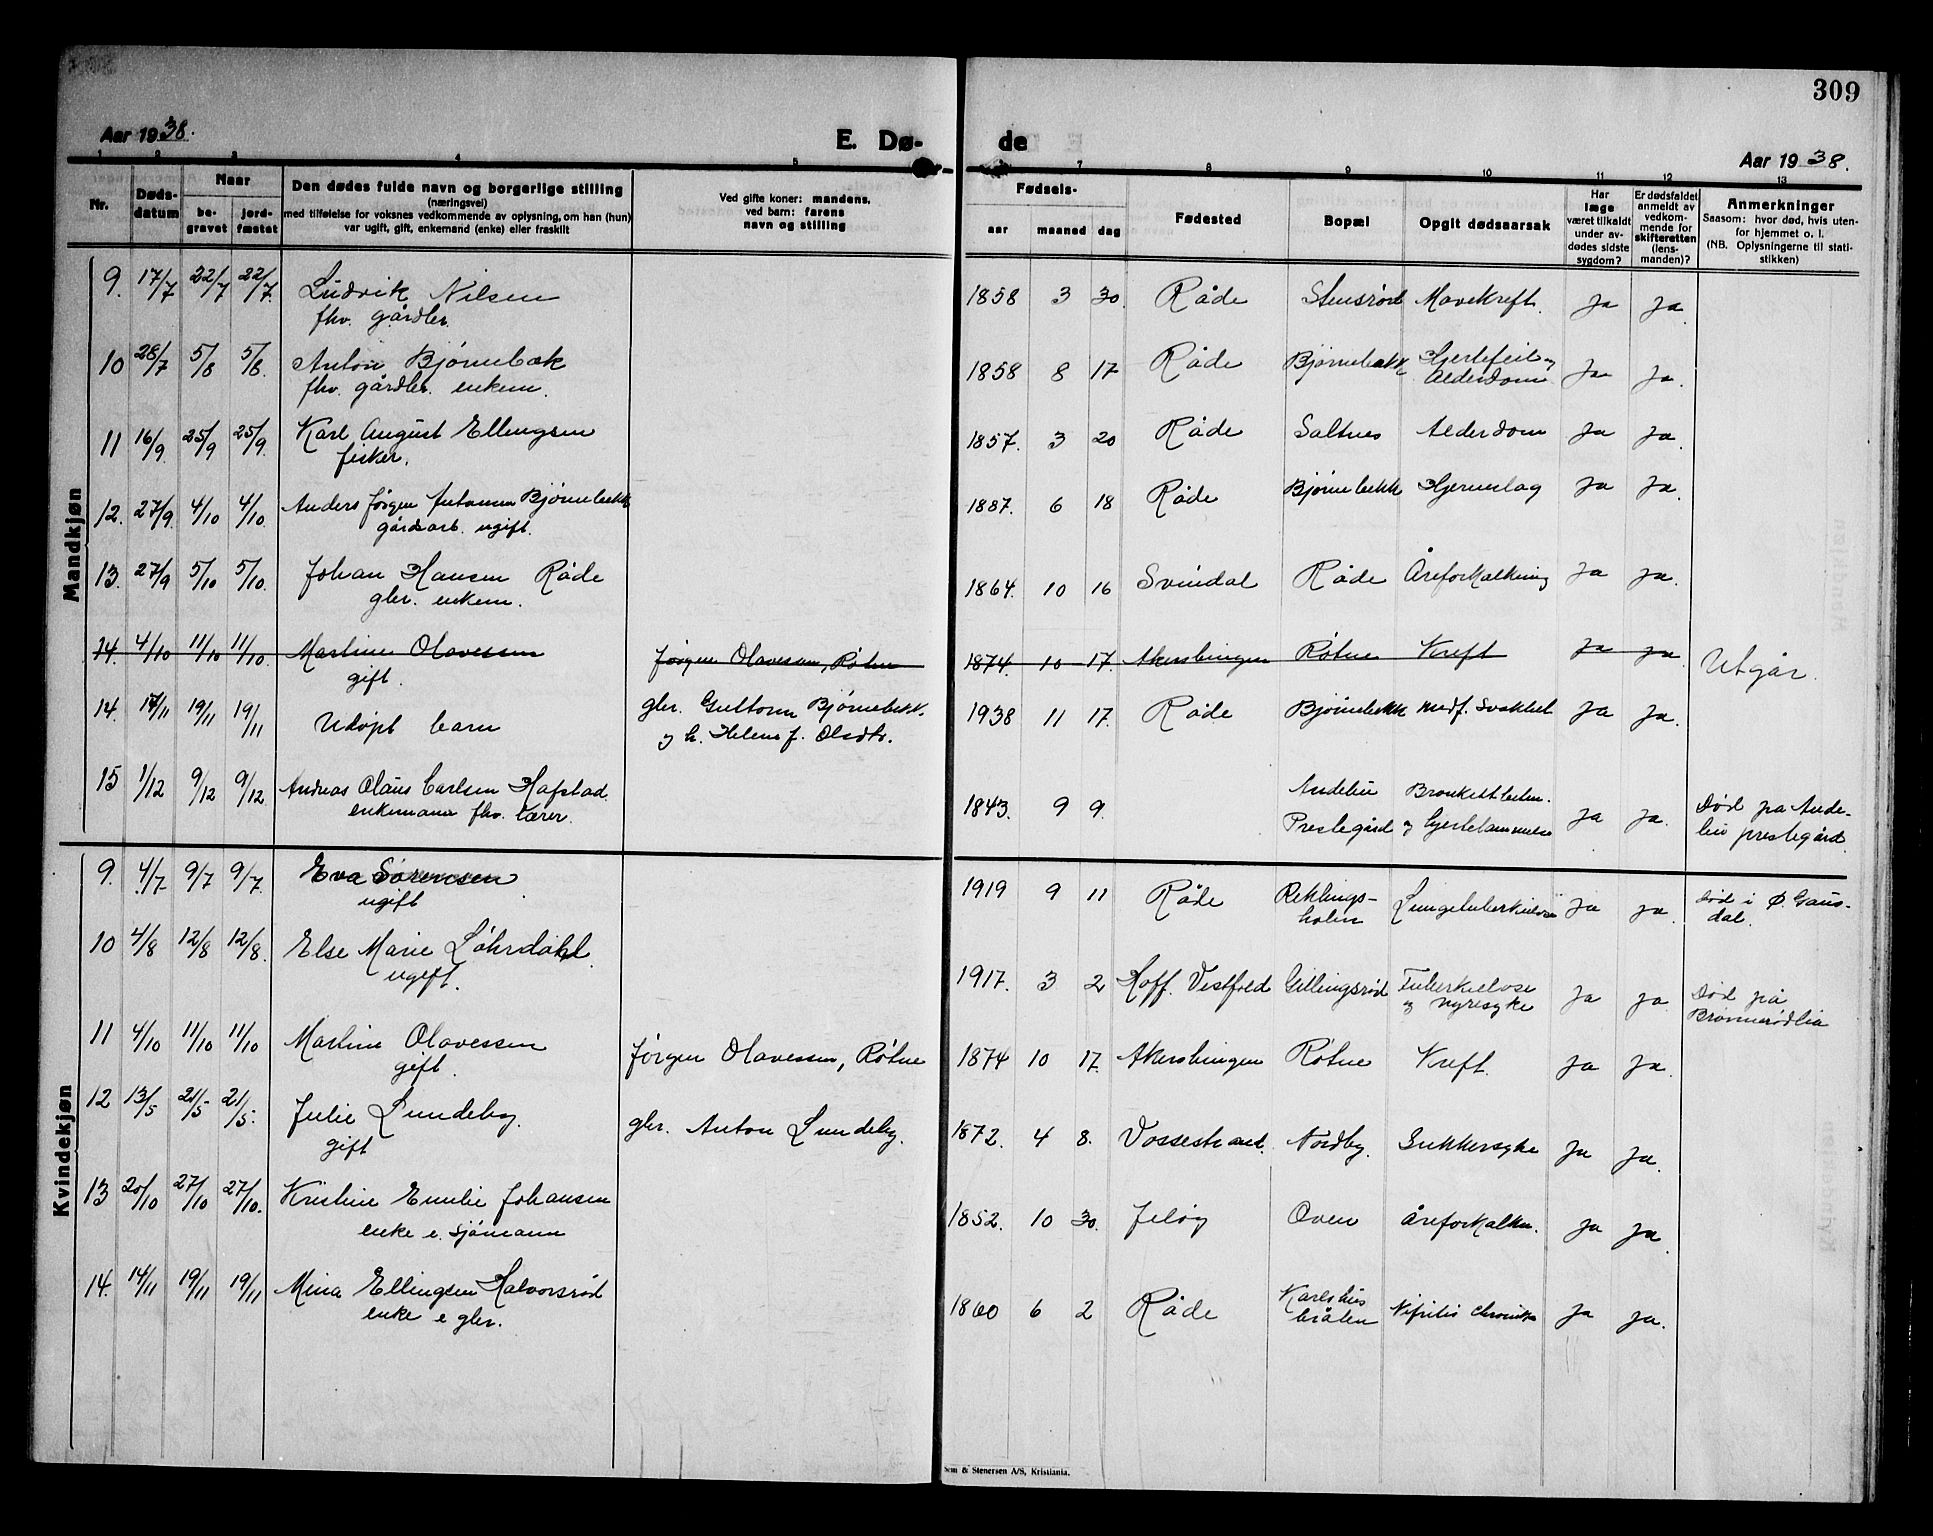 309
Aar 1938.
E. Dø-
de
Aar 1938.
1 2 3 4 5 7 8 9 10 11 12 13
Nr.
Døds-
datum
Naar
be-
gravet
jord-
fæstet
Den dødes fulde navn og borgerlige stilling
(næringsvei)
med tilføielse for voksnes vedkommende av oplysning, om han (hun)
var ugift, gift, enkemand (enke) eller fraskilt
Ved gifte koner: mandens,
ved barn: farens
navn og stilling
Fødsels-
aar maaned dag
Fødested
Bopæl
Opgit dødsaarsak
Har
læge
været tilkaldt
under av-
dødes sidste
sygdom?
Er dødsfaldet
anmeldt av
vedkom-
mende for
skifteretten
(lens-
manden)?
Anmerkninger
Saasom: hvor død, hvis uten-
for hjemmet o. l.
(NB. Oplysningerne til stati-
stikken)
Mandkjøn
9. 17/7 22/7 22/7. Ludvik Nilsen 1858 3 30. Råde Stensrød Mavekreft. Ja Ja.
fhv. gårdbr.
10 28/7 5/8 5/8. Anton Bjørnebæk 1858 8 17 Råde Bjørnebækk Hjertefeil og Ja Ja.
fhv. gårdbr. enkem. Alderdom
11 16/9. 25/9 25/9. Karl August Ellingsen 1857. 3 20 Råde Saltnes Alderdom Ja Ja.
fisker.
12. 27/9. 4/10 4/10. Anders Jørgen Antonsen Bjørnebekk 1887. 6 18 Råde Bjørnebekk Hjerneslag Ja Ja.
gårdsarb. ugift.
13. 27/9 5/10 5/10. Johan Hansen Råde 1864. 10 16 Svindal Råde Åreforkalkning Ja Ja.
gbr. enkem.
14. 4/10 11/10 11/10. Martine Olavessen Jørgen Olavessen, Røtne 1874. 10 17. Akershingen Røtne Kreft Ja Ja. Utgår.
gift.
14. 17/11 19/11 19/11 Udøpt barn gbr. Guttorm Bjørnebekk. 1938 11 17. Råde Bjørnebekk medf. Svakhet Ja Ja.
og h. Helene f. Olsdtr.
15 1/12 9/12 9/12 Andreas Olaus Carlsen Hafstad 1843. 9 9. Andebu Bronkitt Ja Ja. Død på Ande-
enkemann fhv. lærer. Prestegård og hjertelammelse bu prestegård.
Kvindekjøn
9. 4/7 9/7 9/7. Eva Sørensen 1919 9 11 Råde Reklings- Lungetuberkulose Ja Ja. Død i Ø. Gaus-
ugift. holm dal.
10 4/8 12/8 12/8. Else Marie Løhrdahl 1917. 3 2 Hoff. Vestfold Gillingsrød Tuberkulose Ja Ja Død på
ugift. og nyresyke Brønnerødlia
11 4/10 11/10 11/10 Martine Olavessen Jørgen Olavessen, Røtne 1874 10 17. Akershingen Røtne Kreft. Ja Ja.
gift.
12 13/5 21/5 21/5. Julie Lundeby. gbr. Anton Lundeby. 1872. 4 8. Vossestrand. Nordby. Sukkersyke Ja Ja.
gift
13 20/10 27/10 27/10. Kristine Emilie Johansen 1852. 10 30. Jeløy Oven Åreforkalkn. Ja Ja.
enke e. sjømann
14. 14/11 19/11 19/11 Mina Ellingsen Halvorsrød 1860 6 2 Råde Karlshus Nefritis chronika Ja Ja.
enke e gbr. bråten
Sem & Stenersen A/S, Kristiania.